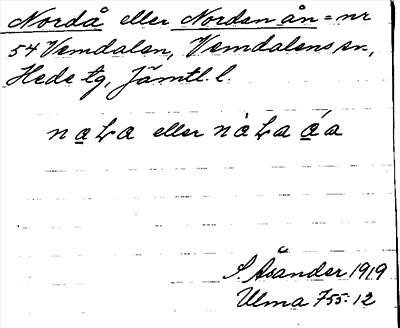 Nordå eller Nordan ån = nr
54 Vemdalen, Vemdalens sn,
Hede tg, Jämtl. l.
naLa eller nàLa áa
S. Åsander 1919
Ulma 755:12